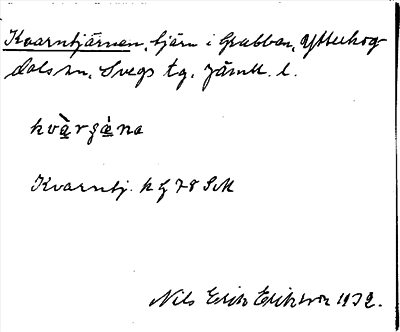 Kvarntjärnen, tjärn i Grubban, Ytterhog-
dals sn, Svegs tg, Jämtl. l.
kvàrgǽna
Kvarntj. k G 78 SM
Nils Erik Eriksson 1932.